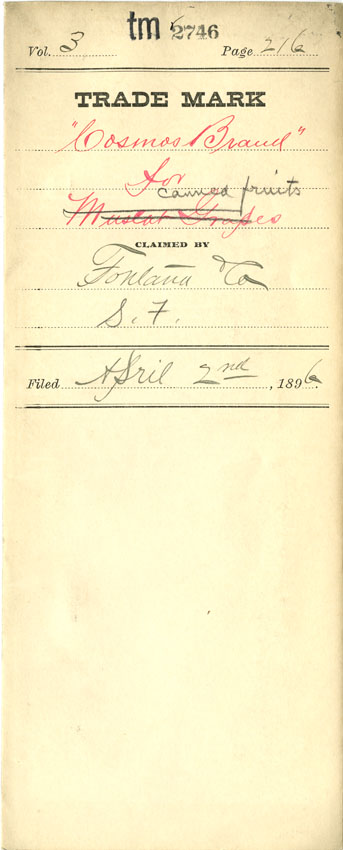 tm 2746
Vol. 3 Page 216
TRADE MARK
"Cosmos Brand"
for
canned fruits
Muscat Grapes
CLAIMED BY
Fontana & Co
S. F.
Filed April 2nd, 1896.